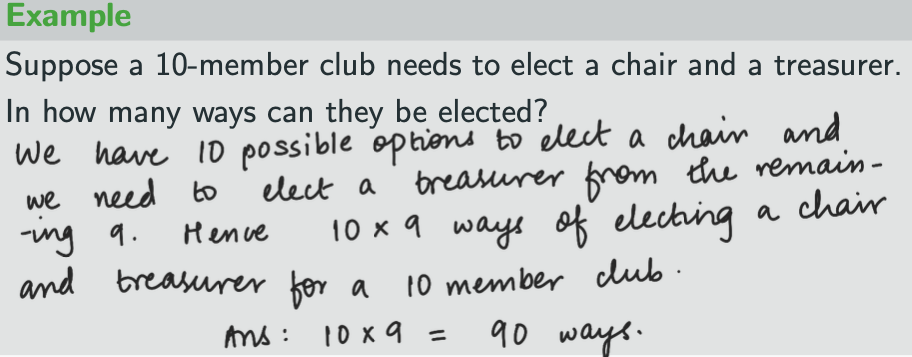 Example
Suppose a 10-member club needs to elect a chair and a treasurer.
In how many ways can they be elected?
We have 10 possible options to elect a chair and
we need to elect a treasurer from the remain-
-ing 9. Hence 10 × 9 ways of electing a chair
and treasurer for a 10 member club.
Ans: 10 × 9 = 90 ways.